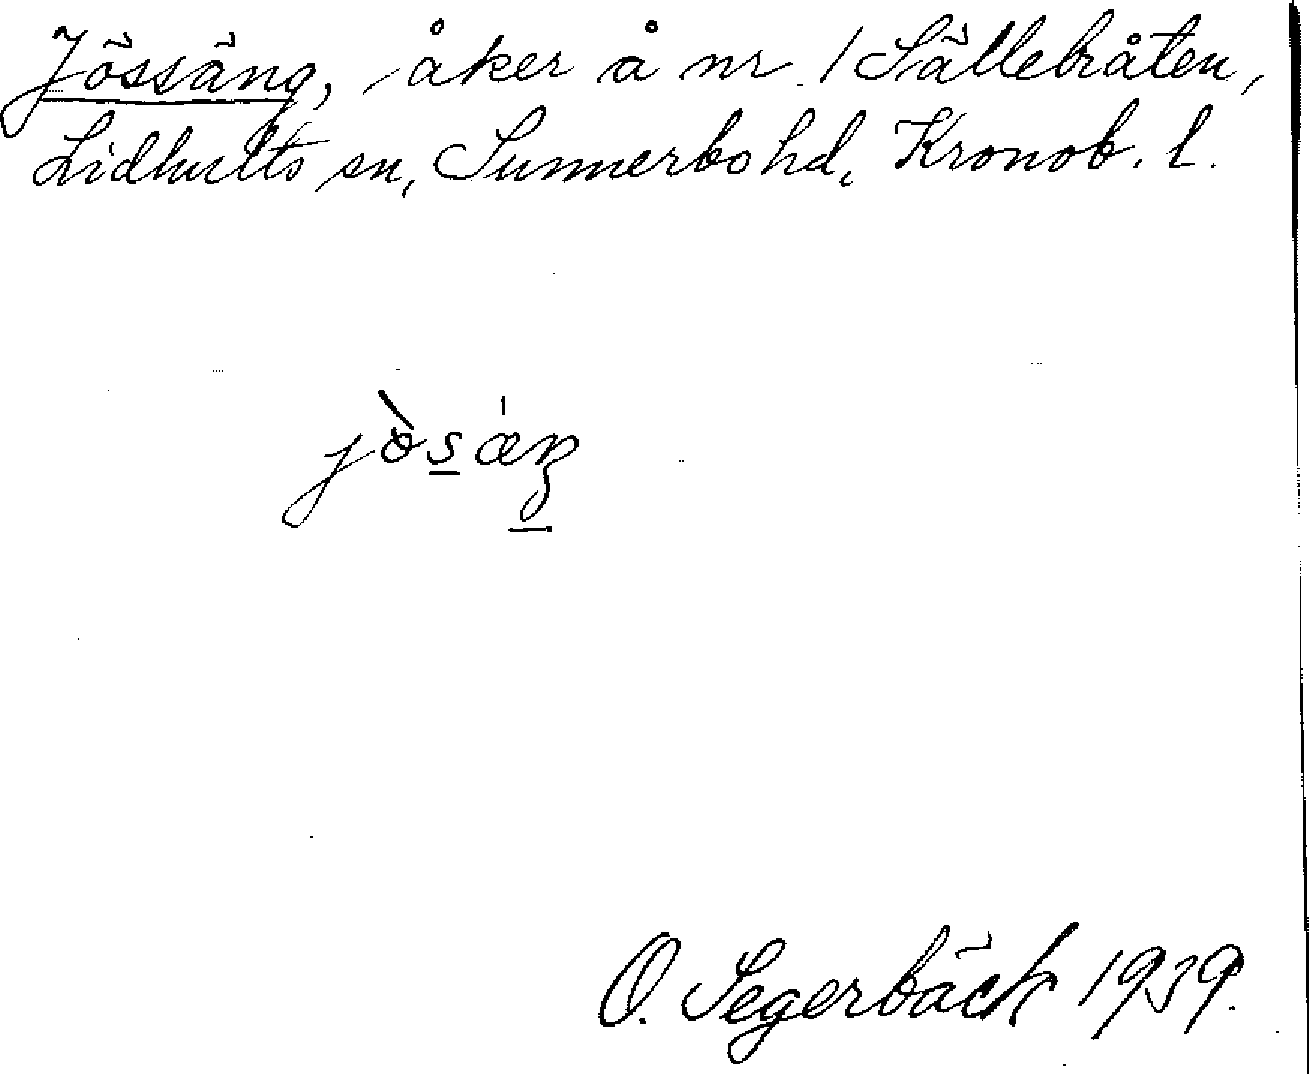 Jössäng, åker å nr 1 Sällebråten,
Lidhults sn, Sunnerbo hd, Kronob. l.
jòsǽŋ
O. Segerbäck 1939.